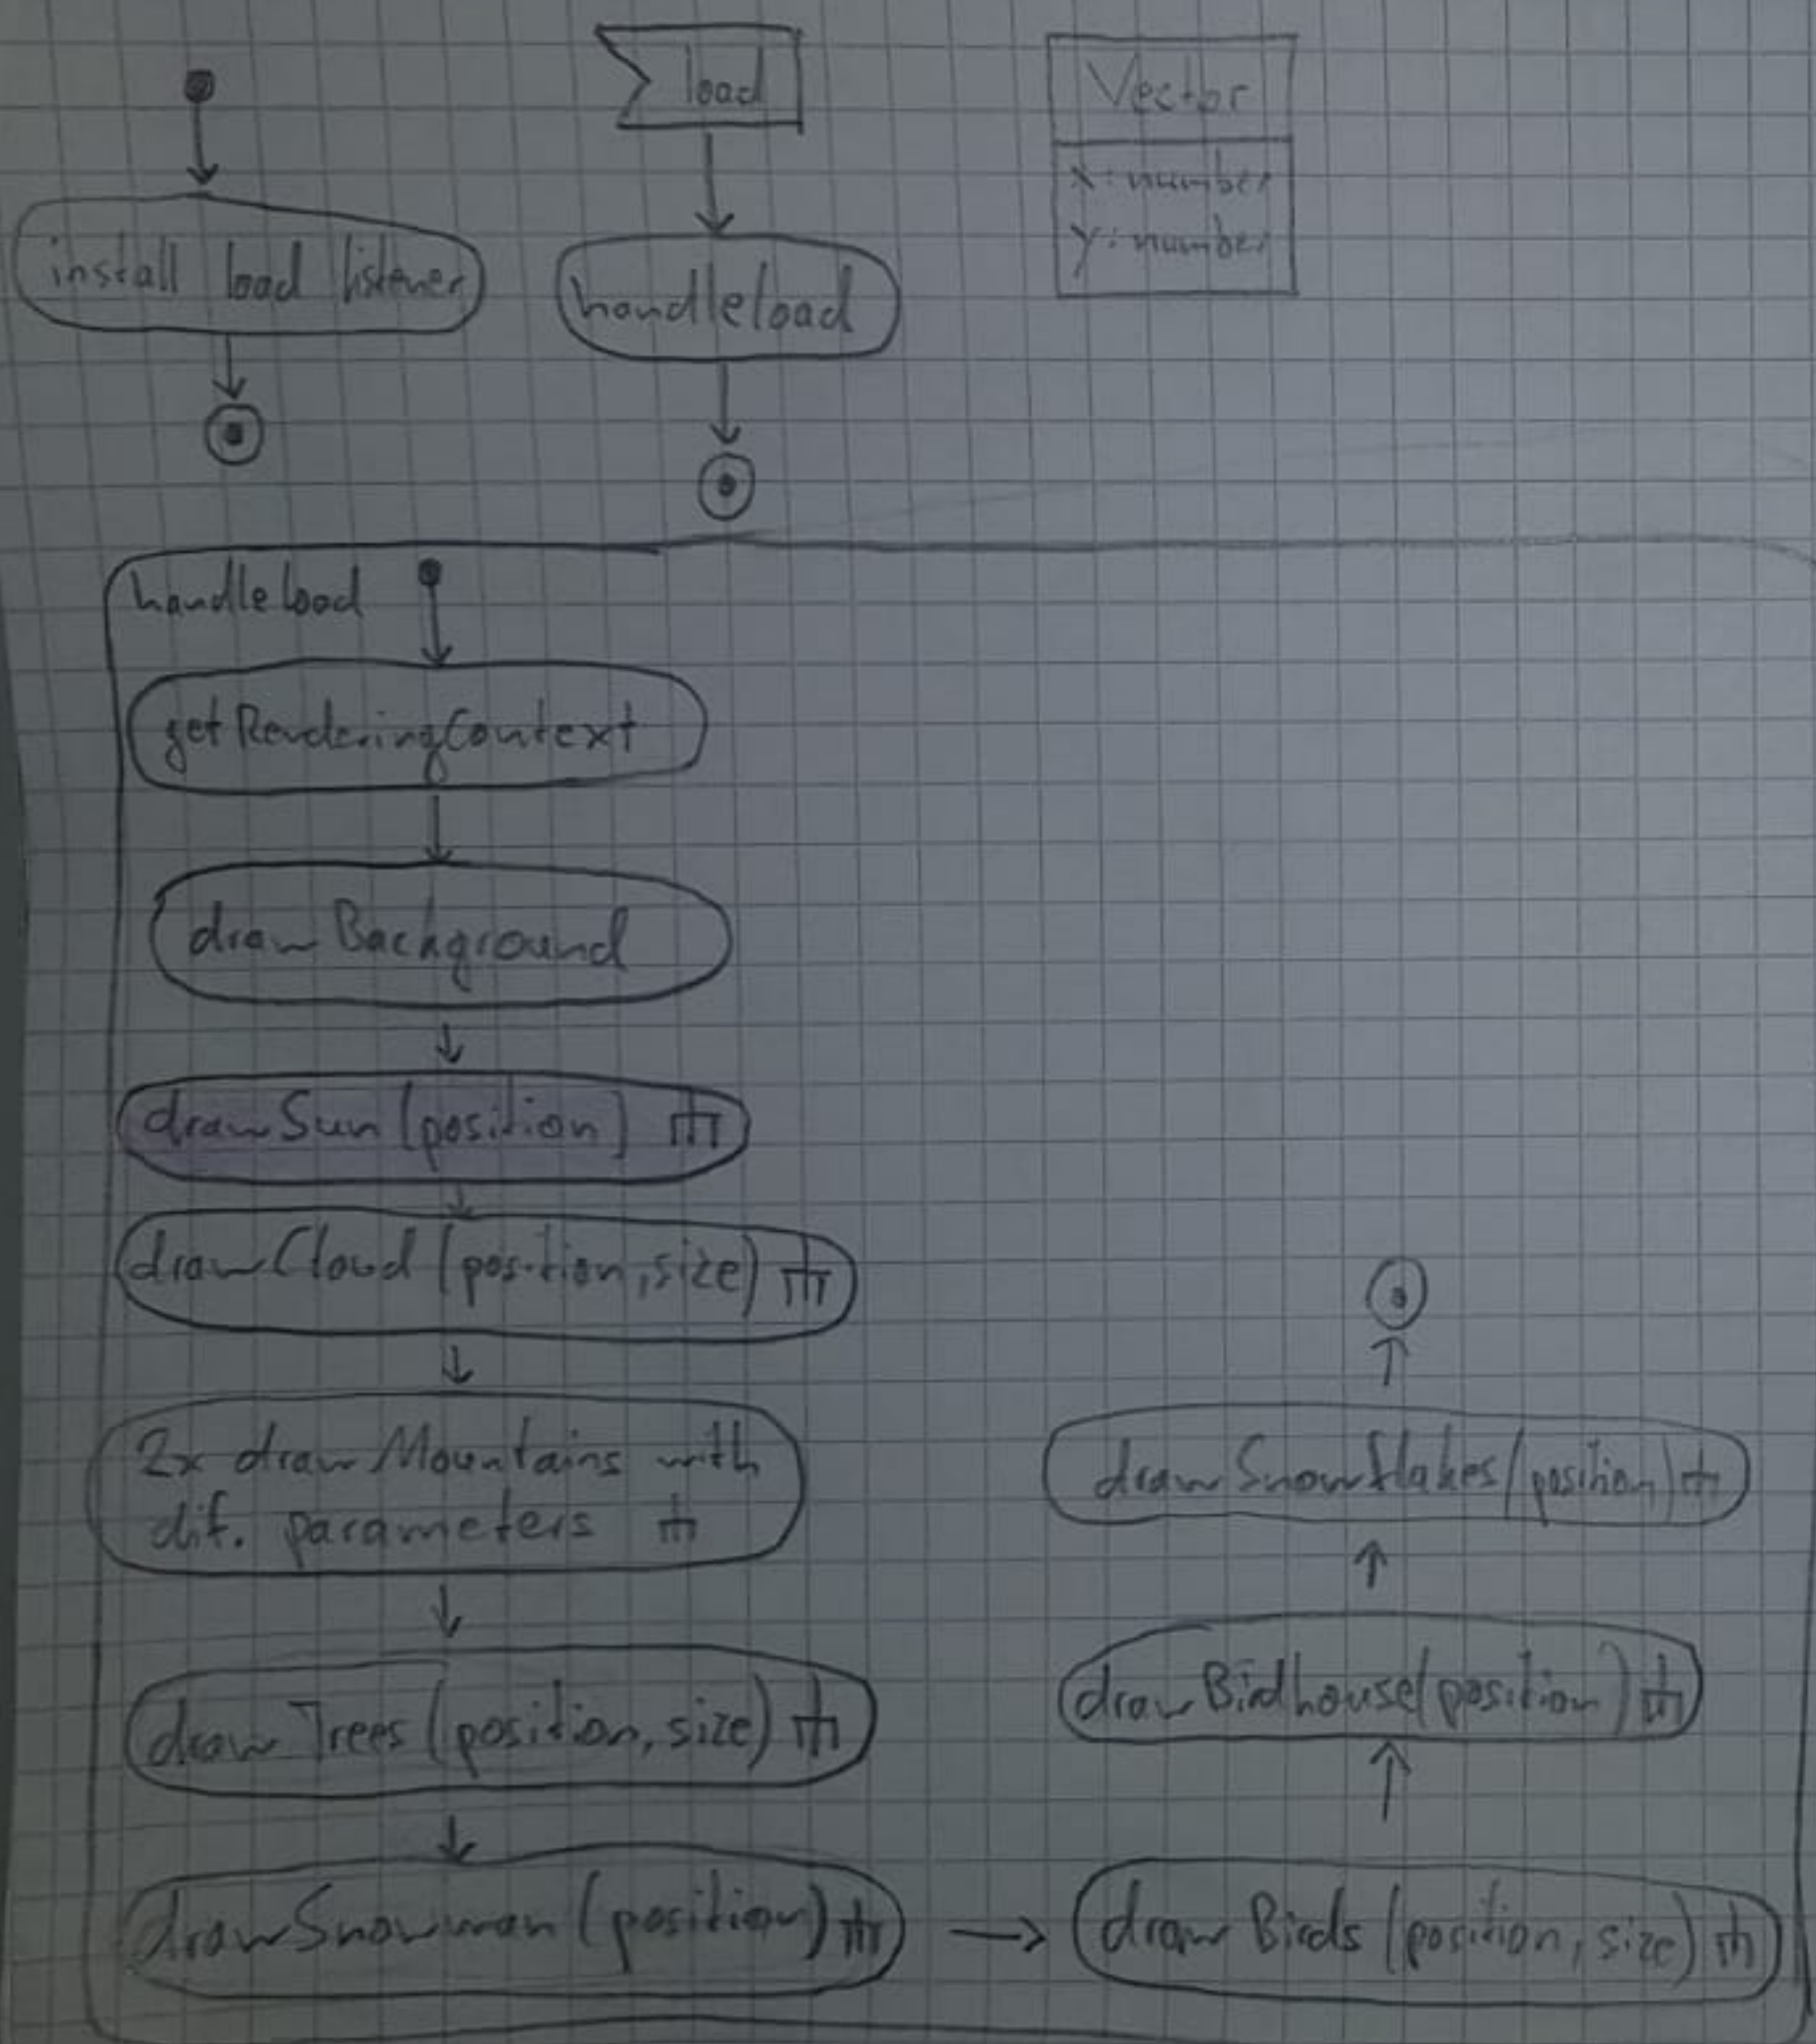 load
Vector
x: number
y: number
install load listener
handleload
handleload
getRenderingContext
drawBackground
drawSun (position)
drawCloud (position, size)
2x drawMountains with
dif. parameters
drawTrees (position, size)
drawSnowman (position)
drawBirds (position, size)
drawBirdhouse (position)
drawSnowflakes (position)